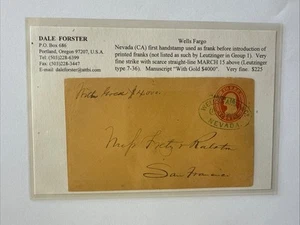 DALE FORSTER
P.O. Box 686
Portland, Oregon 97207, U.S.A.
Tel: (503)228-6399
Fax: (503)228-3447
E-mail daleforster@attbi.com
Wells Fargo
Nevada (CA) first handstamp used as frank before introduction of
printed franks (not listed as such by Leutzinger in Group 1). Very
fine strike with scarce straight-line MARCH 15 above (Leutzinger
type 7-36). Manuscript "With Gold $4000". Very fine. $225
With Gold $4000
Messrs
San Francisco
NEVADA